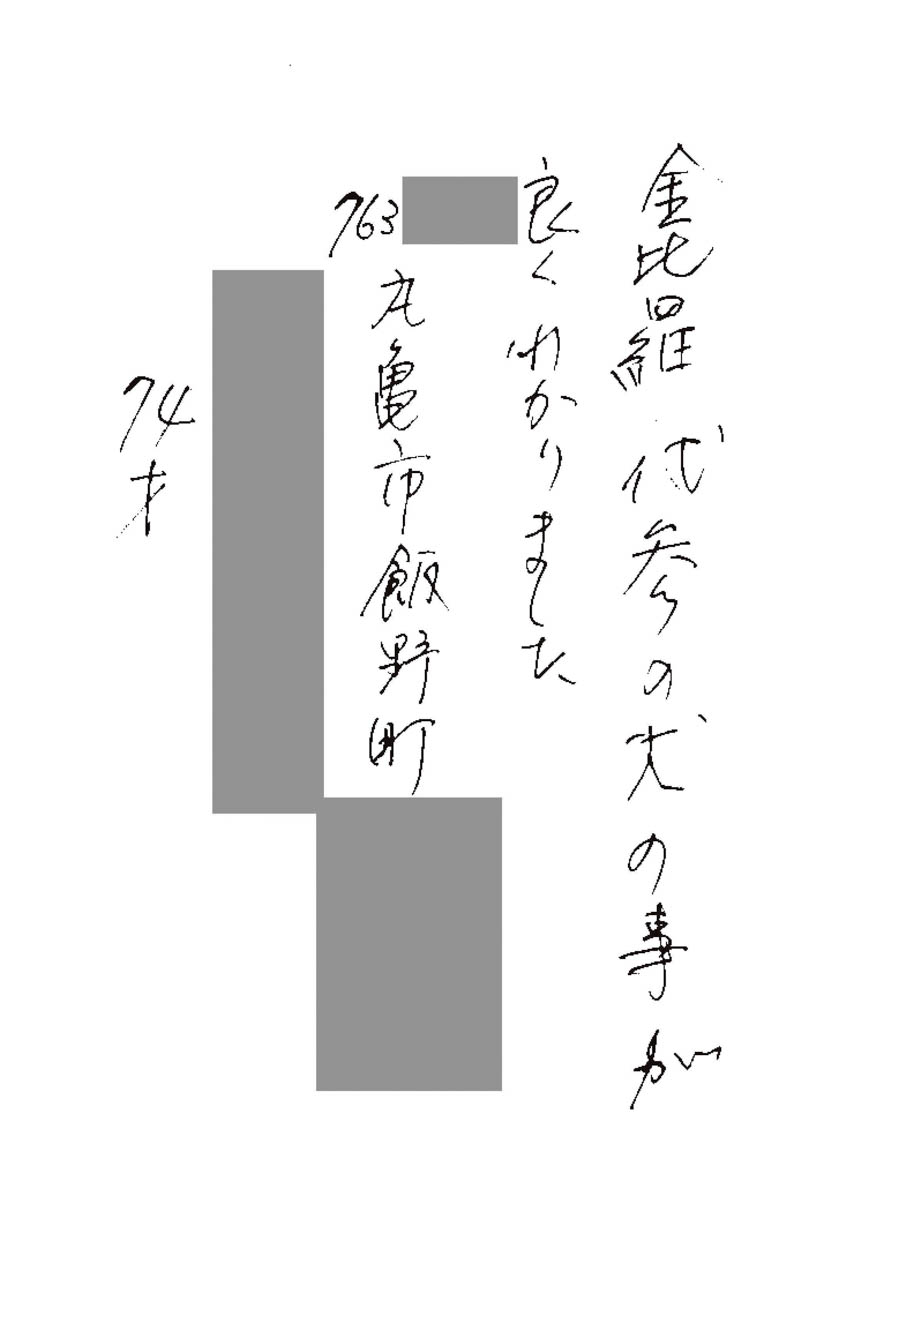 金比羅代参の犬の事が
良くわかりました
763
丸亀市飯野町
74才